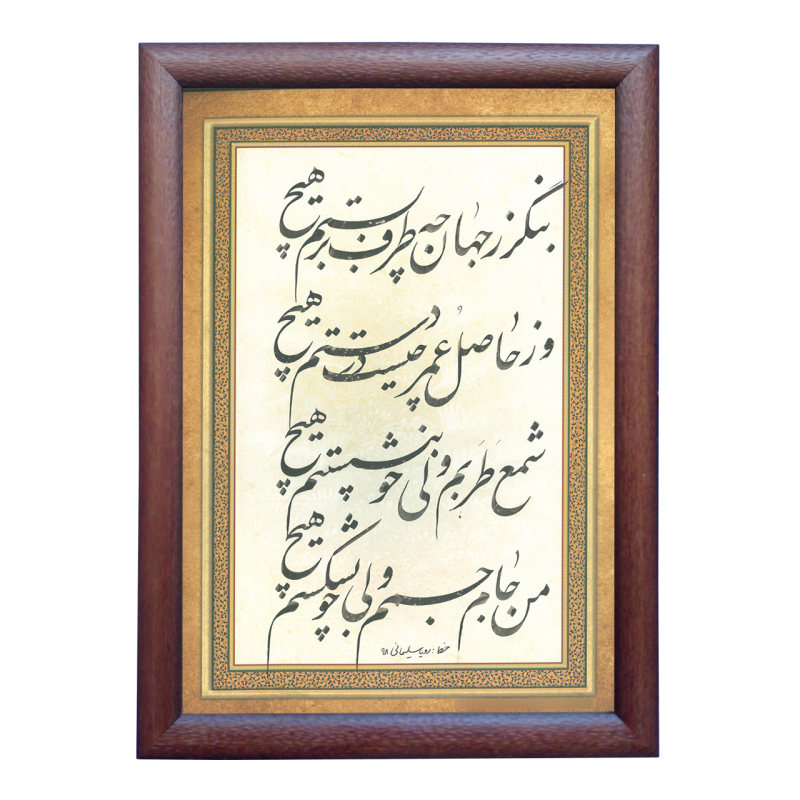 بنگر ز جهان چه طرف بربستم هیچ
وز حاصل عمر چیست در دستم هیچ
شمع طربم ولی چو بنشستم هیچ
من جام جمم ولی چو بشکستم هیچ
خط: رویا سلیمانی ۹۸